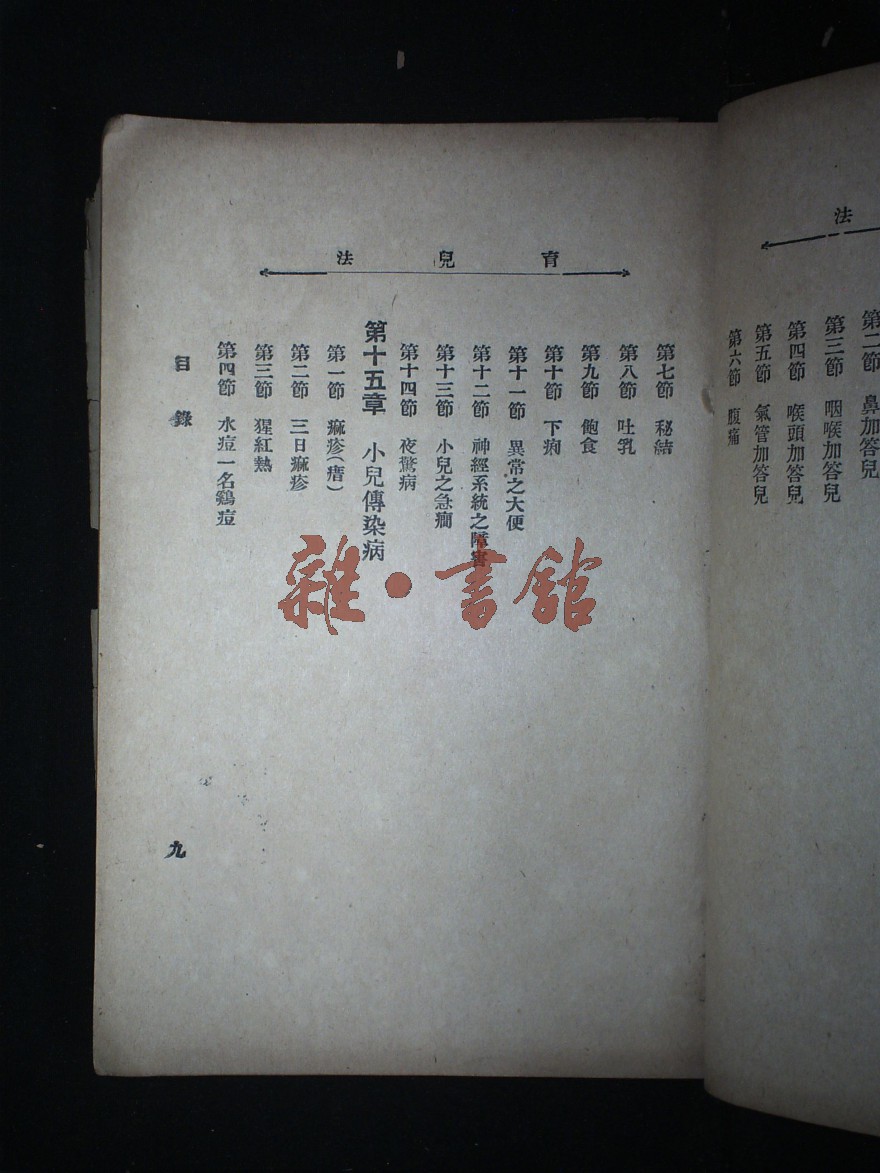 法
第二節　鼻加答兒
第三節　咽喉加答兒
第四節　喉頭加答兒
第五節　氣管加答兒
第六節　腹痛
育兒法
第七節　秘結
第八節　吐乳
第九節　飽食
第十節　下痢
第十一節　異常之大便
第十二節　神經系統之障害
第十三節　小兒之急癎
第十四節　夜驚病
第十五章　小兒傳染病
第一節　痲疹(瘄)
第二節　三日痲疹
第三節　猩紅熱
第四節　水痘一名鷄痘
目錄
九
雜·書館